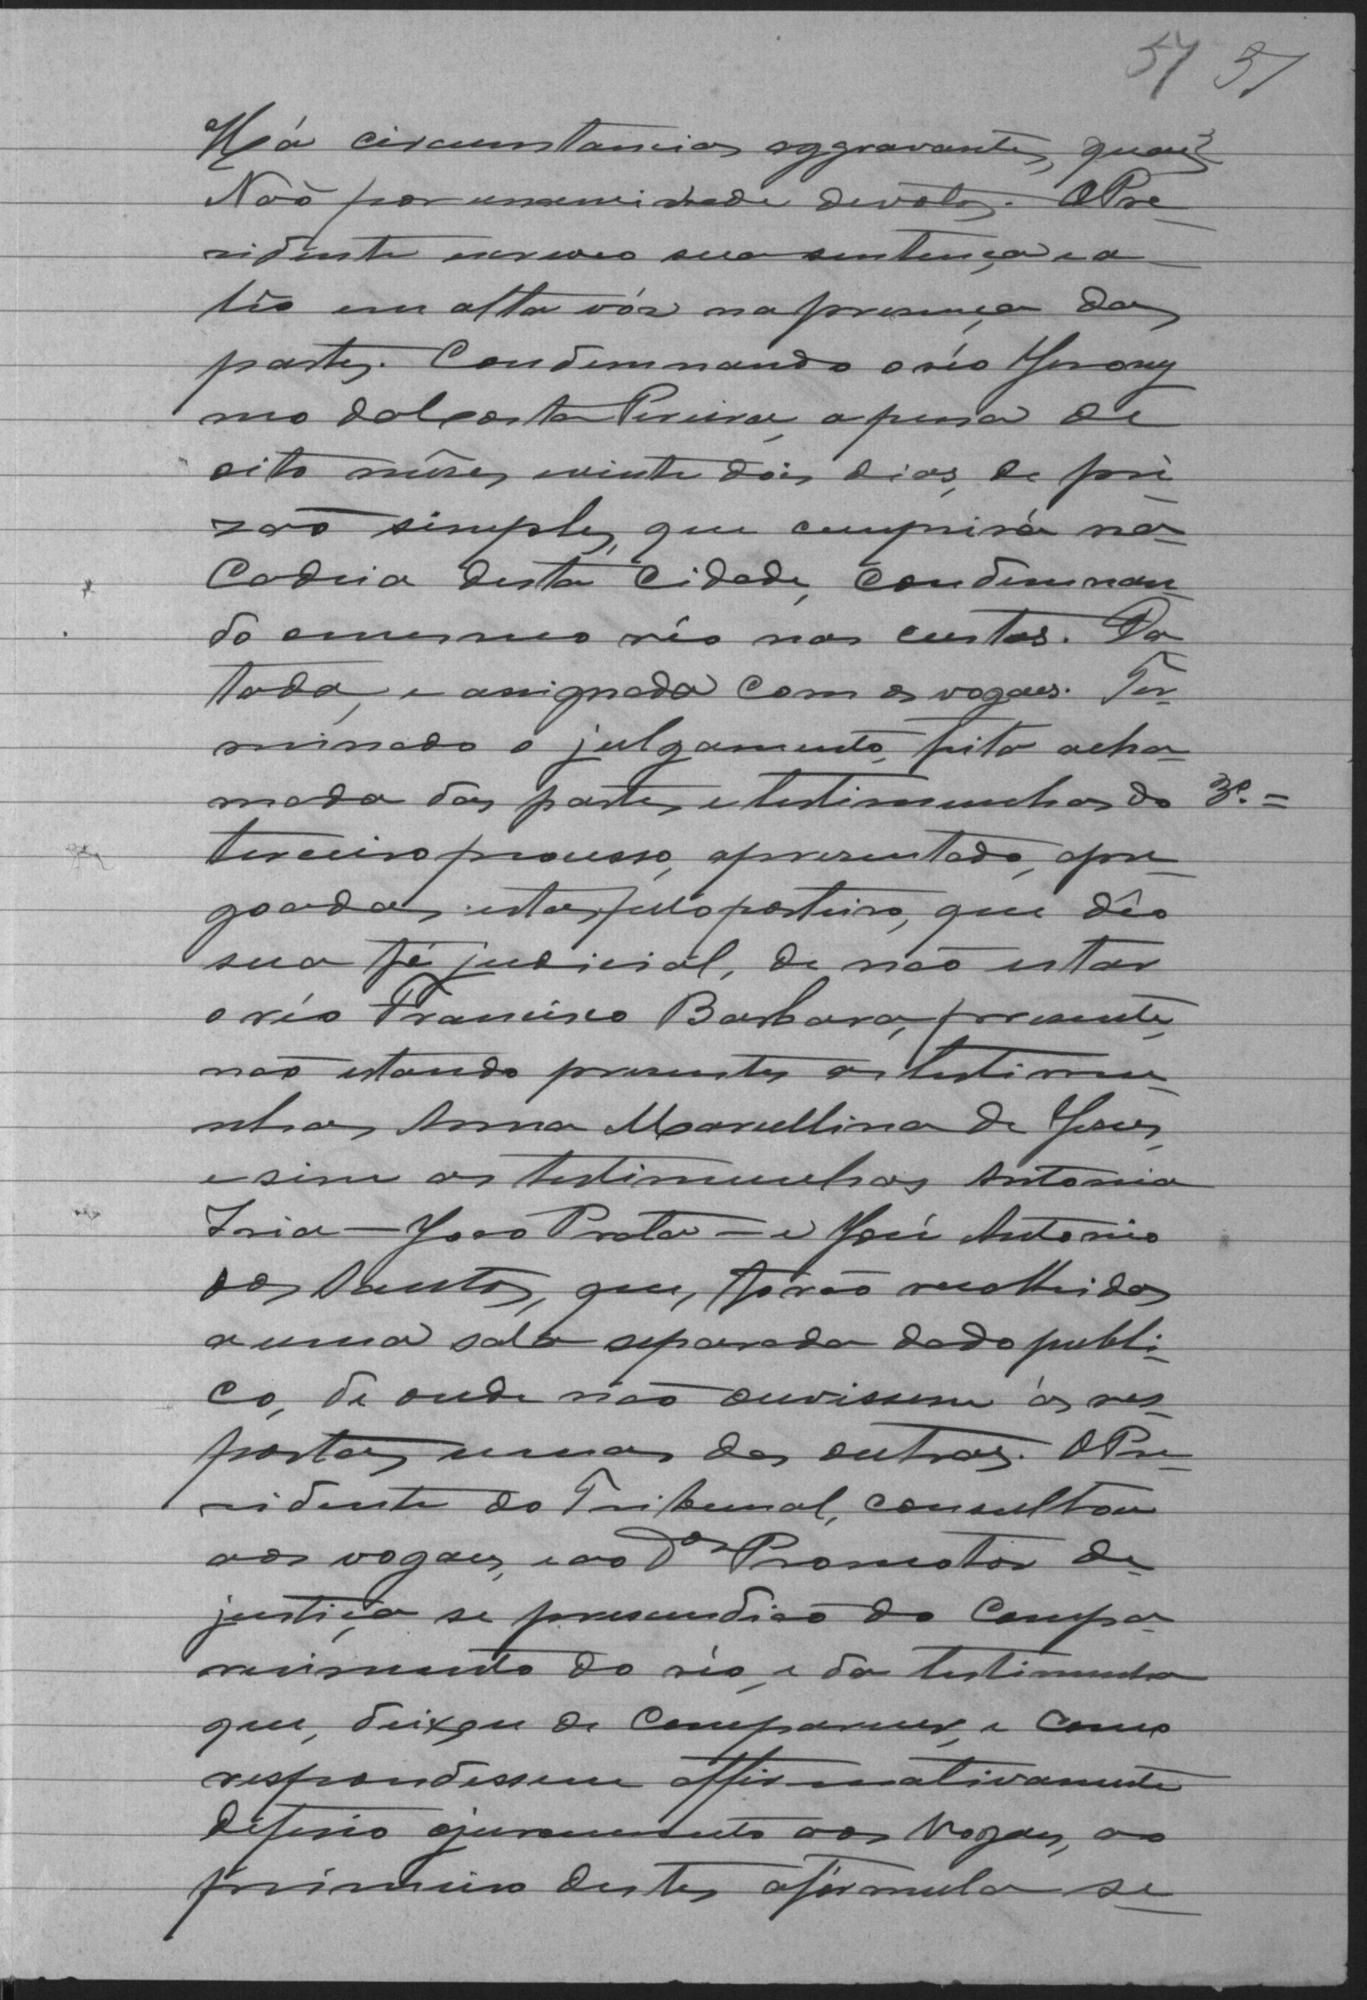 57 57
Há circumstancias aggravantes, quaes?
Não por unanimidade devotos. O Pre-
sidente escreveo sua sentença e a
lêo em alta vóz na presença das
partes. Condemnando o réo Jerony
mo da Costa Pereira, a pena de
oito mêses, e vinte dois dias, de pri-
zaõ simples, que cumprirá na
Cadeia desta Cidade, Condemnan-
do o mesmo réo nas custas. Da
tada, e assignada com os vogaes. Ter-
minado o julgamento, feita a cha-
mada das partes, e testimunhas do
3º. =
terceiro processo, apresentado, apre-
goadas estas, pelo porteiro, que dêo
sua fé judicial, de não estar
o réo Francisco Barbara, presente,
não estando presentes as testimu-
nhas Anna Marcellina de Jesus,
e sim as testimunhas Antonia
Iria — João Prata — e José Antonio
dos Santos, que, forão recolhidas
a uma sala separada dado publi-
co, de onde não ouvissem ás res-
postas, umas das outras. O Pre-
sidente do Tribunal, consultou
aos vogaes, e ao Dor Promotor de
justiça se prescendião do Compa-
recimento do réo, e da testimunha
que, deixou de Comparecer, e Como
respondessem affirmativamente
deferio ojuramento aos Vogaes, ao
primeiro destes a formula se